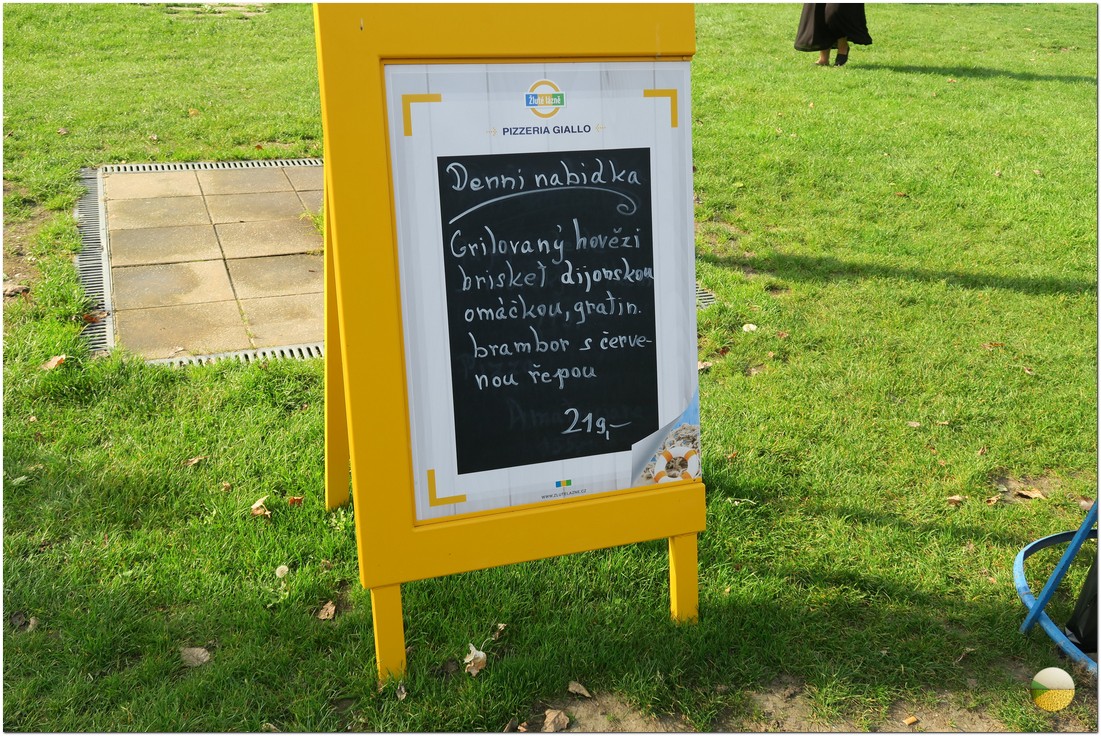 Žluté lázně
PIZZERIA GIALLO
Denní nabídka
Grilovaný hovězí
brisket dijonskou
omáčkou, gratin.
brambor s červe-
nou řepou
219,-
WWW.ZLUTELAZNE.CZ